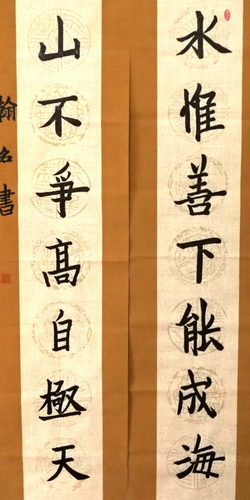 水惟善下能成海
山不爭高自極天
翰名書